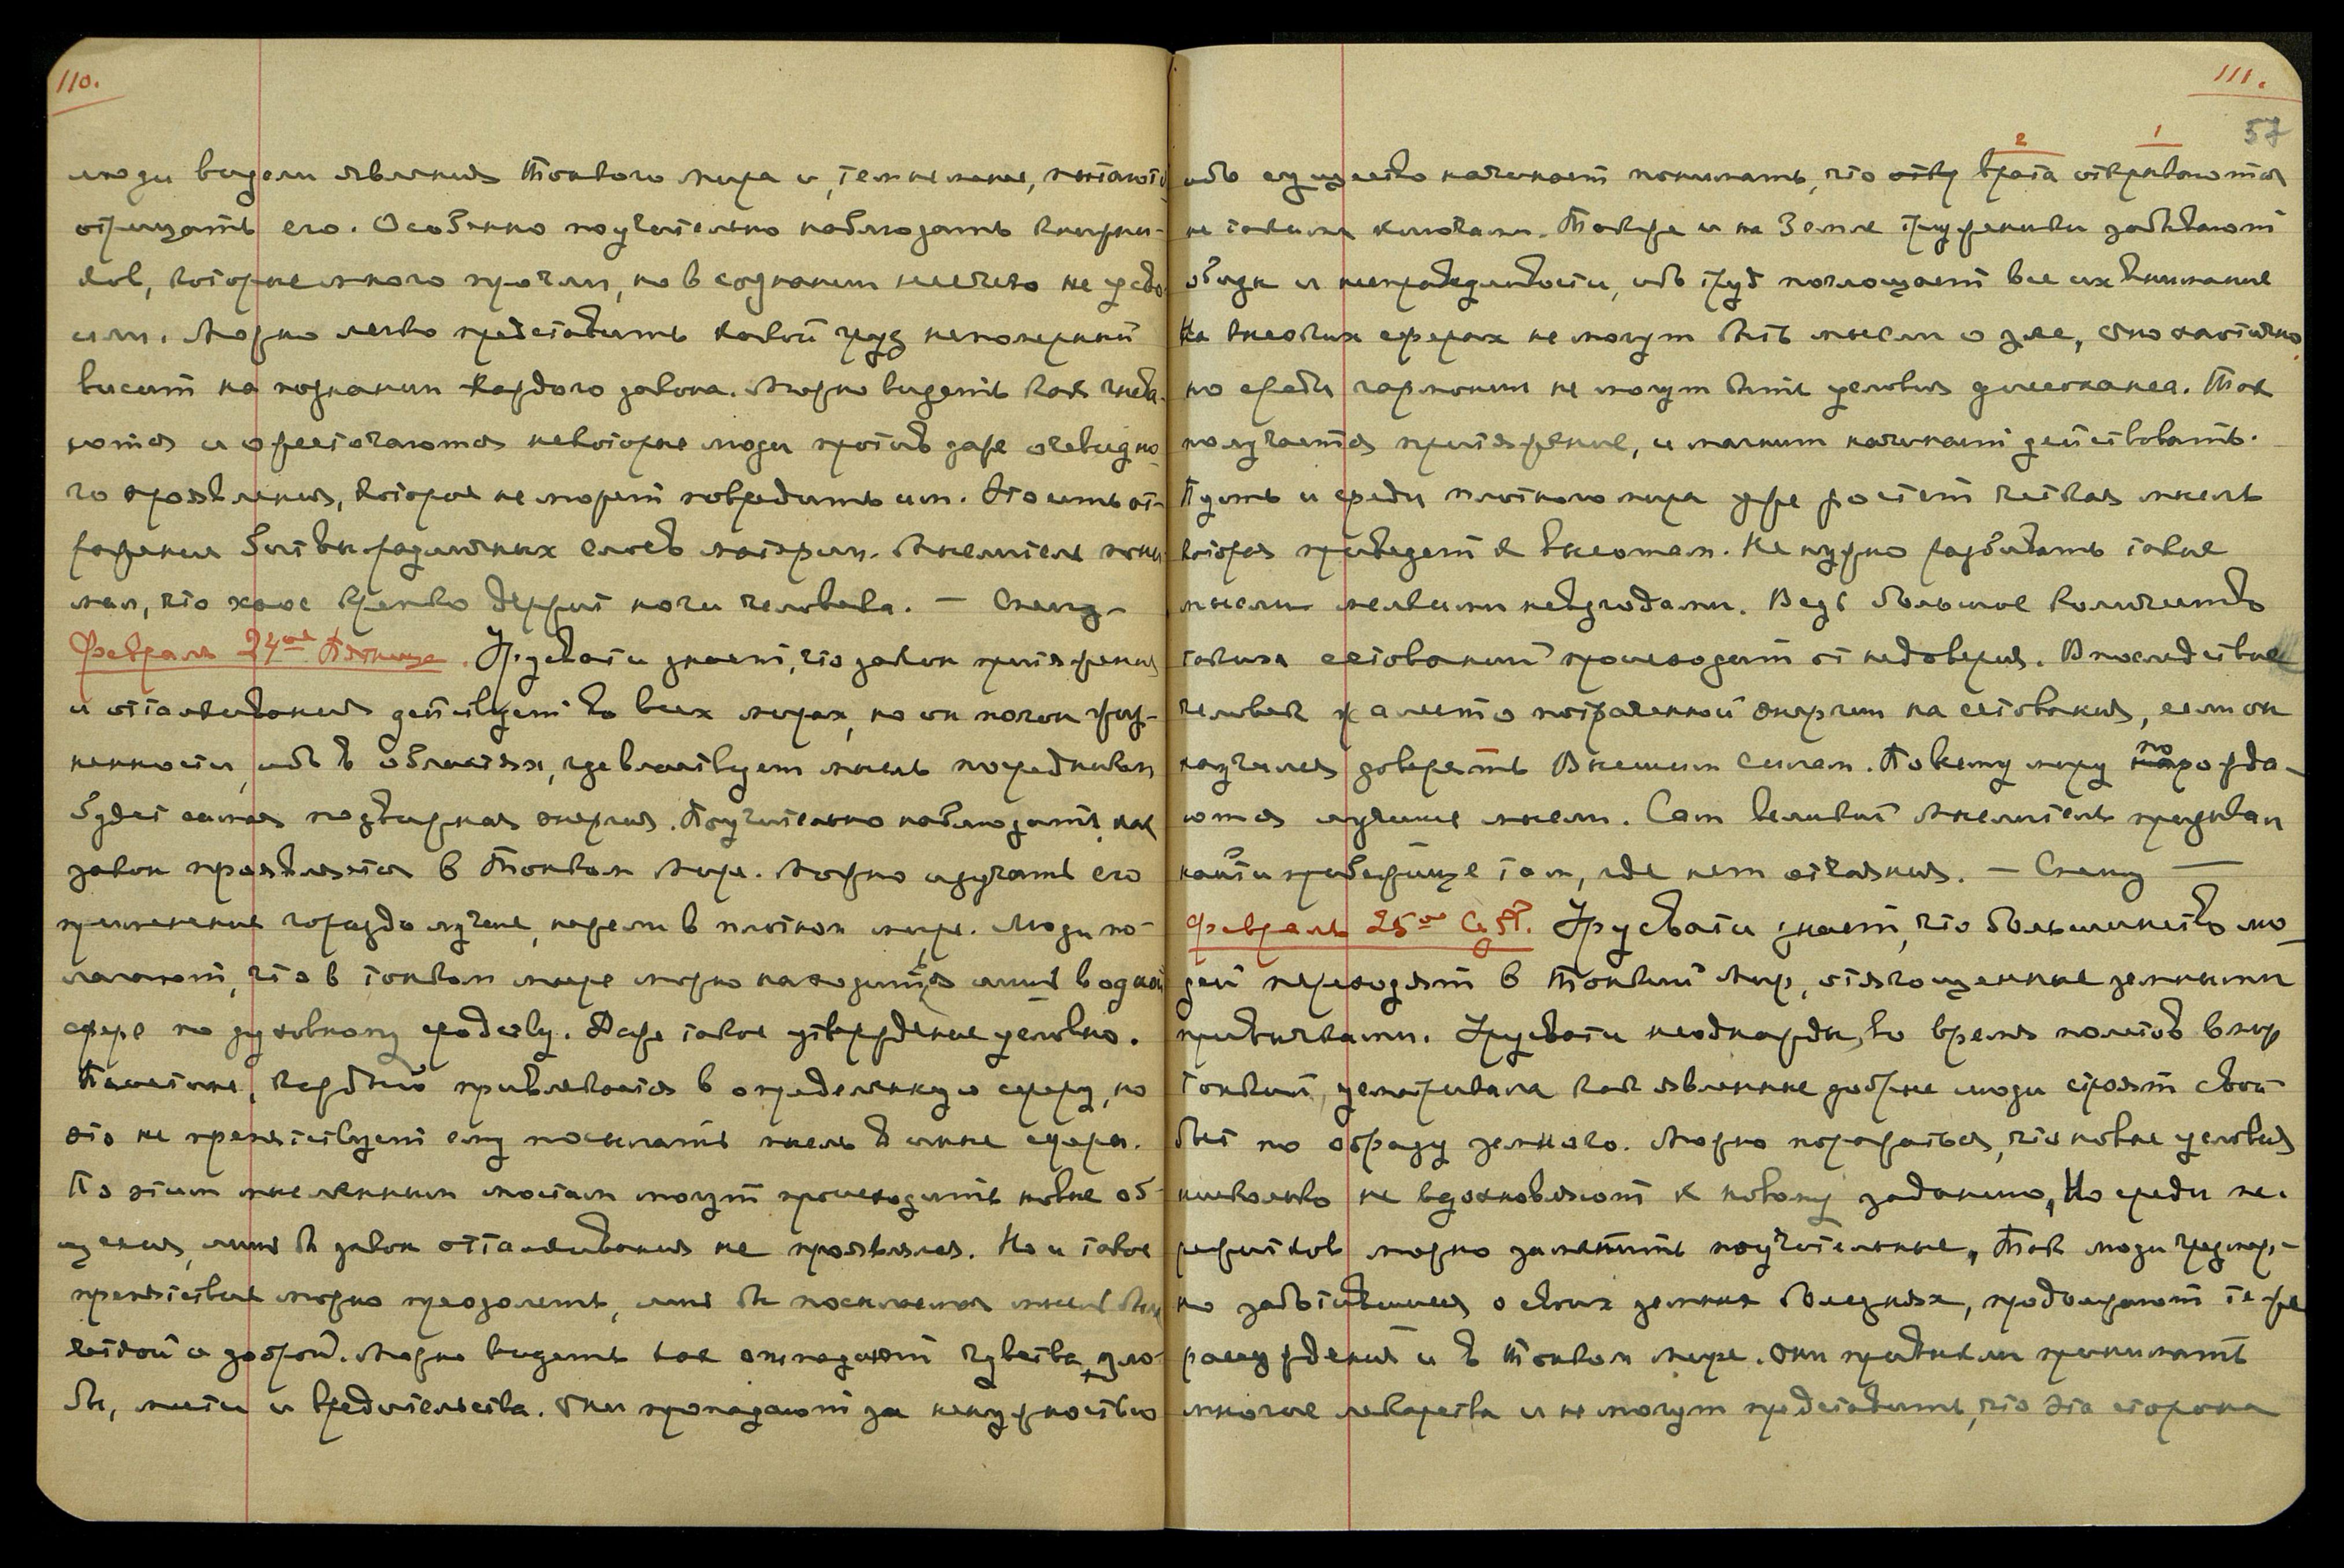 110.
люди видели явления Тонкого мира и, тем не менее, пытают
отрицать его. Особенно поучительно наблюдать книжни-
ков, которые много прочли, но в сознании ничего не усво
или. Можно легко представить какой груз непомерный
висит на познании каждого закона. Можно видеть как гнева-
ются и ожесточаются некоторые люди против даже очевидно-
го проявления, которое не может повредить им. Это есть от-
ражение битвы различных слоев материи. Мыслитель пони
мал, что хаос крепко держит ноги человека. —
Февраль 24ое Пятница. Урусвати знает, что закон притяжения
и отталкивания действует во всех мирах, но он полон
ибо в областях, где властвует мысль посредником
будет самая энергия. Поучительно наблюдать, как
закон проявляется в Тонком Мире. Можно изучать его
применение гораздо лучше, нежели в плотном мире. Люди по-
лагают, что в тонком мире можно находиться лишь в одной
сфере по духовному сродству. Даже такое утверждение условно.
Поистине, каждый привлекается в определенную сферу, но
это не препятствует ему посылать мысль в иные сферы.
По этим мысленным мостам могут происходить новые об-
щения, лишь бы закон отталкивания не проявлялся. Но и такое
препятствие можно преодолеть, лишь бы посылаемая мысль была
четкой и доброй. Можно видеть как отпадают чувства зло-
бы, мести и вредительства. Они пропадают за ненужностью
111.
57
2 1
ибо существо начинает понимать, что врата открываются
не такими ключами. Также и на Земле труженики забывают
обиды и несправедливости, ибо труд поглощает все их внимание
На высоких сферах не могут быть мысли о зле, оно хаотично,
но среди гармонии не могут быть условия диссонанса. Так
получается притяжение, и магнит начинает действовать.
Пусть и среди плотного мира уже растет четкая мысль
которая приведет к высотам. Не нужно разбивать такие
мысли мелкими невзгодами. Ведь большое количество
таких сетований происходит от недоверия. Впоследствие
человек жалеет о потраченной энергии на сетования, если он
научился доверять Высшим Силам. По всему миру порожда-
ются лучшие мысли. Сам великий Мыслитель призывал
найти прибежище там, где нет отчаяния. —
Февраль 25ое Субб. Урусвати знает, что большинство лю-
дей переходят в Тонкий Мир, отягощенные земными
привычками. Урусвати неоднажды, во время полетов в мир
Тонкий, усматривала как явленные добрые люди строят свой
быт по образу земного. Можно поражаться, что новые условия
нисколько не вдохновляют к новому заданию, Но среди пе-
режитков можно заметить поучительные, Так люди чрезмер-
но заботившиеся о своих земных болезнях, продолжают те же
рассуждения и в Тонком мире. Они привыкли принимать
многие лекарства и не могут представить, что эта сторона